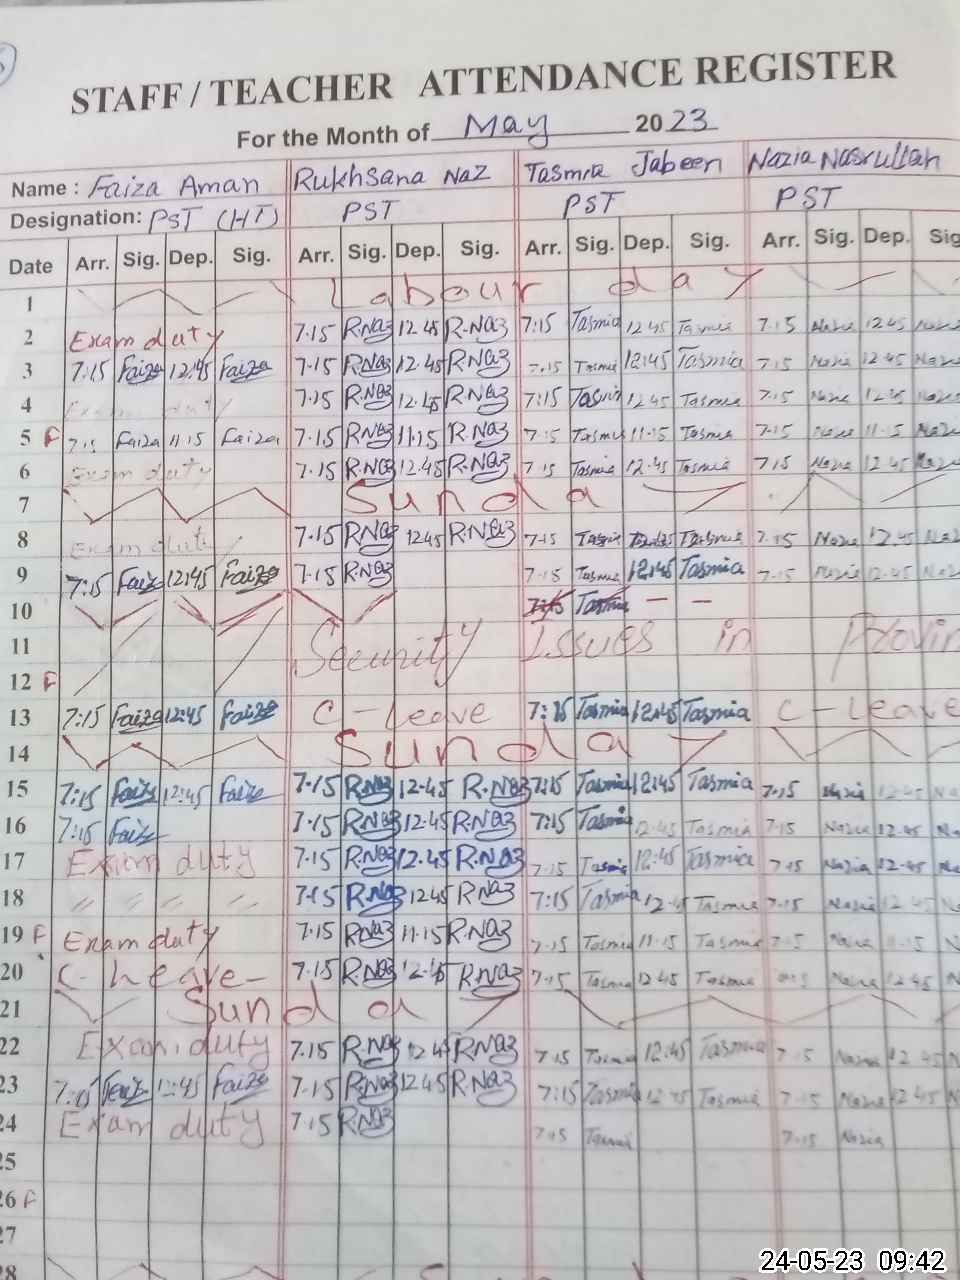 STAFF / TEACHER ATTENDANCE REGISTER
For the Month of May 2023
Name : Faiza Aman Rukhsana Naz Tasmia Jabeen Nazia Nasrullah
Designation: PST (HT) PST PST PST
Date Arr. Sig. Dep. Sig. Arr. Sig. Dep. Sig. Arr. Sig. Dep. Sig. Arr. Sig. Dep. Sig
1 Labour day
2 Exam duty 7.15 R.Naz 12.45 R.Naz 7:15 Tasmia 12 45 Tasmia 7.15 Nazia 12 45 Nazia
3 7:15 Faiza 12:45 Faiza 7.15 R.Naz 12.45 R.Naz 7.15 Tasmia 12:45 Tasmia 7.15 Nazia 12.45 Nazia
4 Exam duty 7.15 R.Naz 12.45 R.Naz 7:15 Tasmia 12 45 Tasmia 7.15 Nazia 12 45 Nazia
5 F 7:15 Faiza 11:15 Faiza 7.15 R.Naz 11.15 R.Naz 7.15 Tasmia 11.15 Tasmia 7.15 Nazia 11.15 Nazia
6 Exam duty 7.15 R.Naz 12.45 R.Naz 7.15 Tasmia 12.45 Tasmia 7.15 Nazia 12 45 Nazia
7 Sunday
8 Exam duty 7.15 R.Naz 12.45 R.Naz 7.15 Tasmia 12.45 Tasmia 7.15 Nazia 12.45 Naz
9 7:15 Faiza 12:45 Faiza 7.15 R.Naz 7.15 Tasmia 12:45 Tasmia 7.15 Nazia 12.45 Nazia
10 7:15 Tasmia — —
11 Security Issues in Provin
12 F
13 7:15 Faiza 12:45 Faiza C-leave 7:15 Tasmia 12:45 Tasmia C-leave
14 Sunday
15 7:15 Faiza 12:45 Faiza 7.15 R.Naz 12.45 R.Naz 7:15 Tasmia 12:45 Tasmia 7.15 Nazia 12.45 Na
16 7:15 Faiza 7.15 R.Naz 12.45 R.Naz 7:15 Tasmia 12:45 Tasmia 7.15 Nazia 12.45 Na
17 Exam duty 7.15 R.Naz 12.45 R.Naz 7.15 Tasmia 12:45 Tasmia 7.15 Nazia 12.45 Na
18 〃 〃 〃 〃 7.15 R.Naz 12.45 R.Naz 7:15 Tasmia 12.45 Tasmia 7.15 Nazia 12.45 N
19 F Exam duty 7.15 R.Naz 11.15 R.Naz 7.15 Tasmia 11.15 Tasmia 7.15 Nazia 11.15 N
20 C-leave- 7.15 R.Naz 12.45 R.Naz 7.15 Tasmia 12.45 Tasmia Nazia 12.45 N
21 Sunday
22 Exam duty 7.15 R.Naz 12.45 R.Naz 7.15 Tasmia 12:45 Tasmia 7.15 Nazia 12 45 N
23 7:15 Faiza 12:45 Faiza 7.15 R.Naz 12.45 R.Naz 7:15 Tasmia 12 45 Tasmia 7.15 Nazia 12 45 N
24 Exam duty 7.15 R.Naz 7.15 Tasmia 7.15 Nazia
25
26 F
27
28
24-05-23 09:42